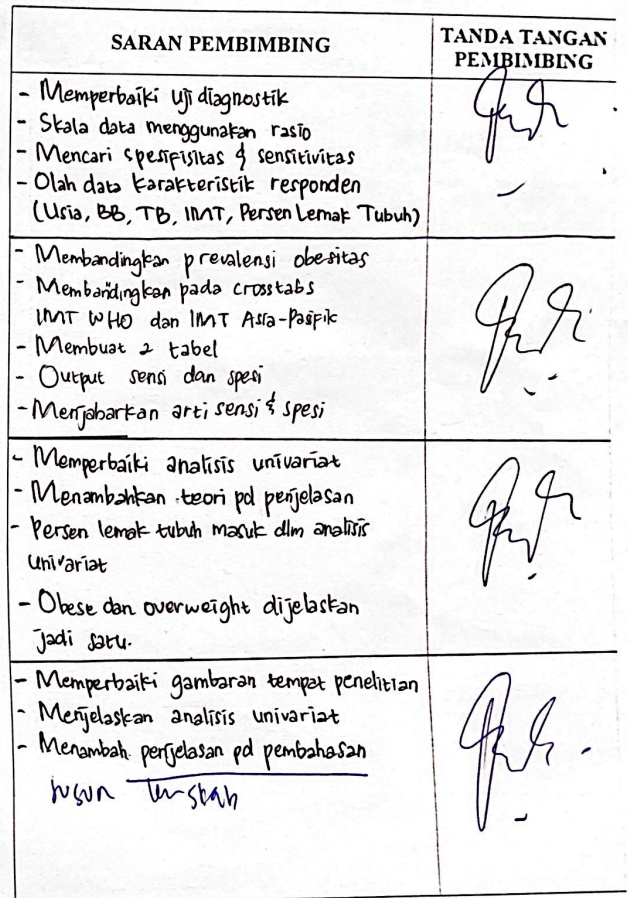 SARAN PEMBIMBING
TANDA TANGAN
PEMBIMBING
- Memperbaiki uji diagnostik
- Skala data menggunakan rasio
- Mencari spesifisitas & sensitivitas
- Olah data karakteristik responden
(Usia, BB, TB, IMT, Persen Lemak Tubuh)
- Membandingkan prevalensi obesitas
- Membandingkan pada crosstabs
IMT WHO dan IMT Asia-Pasifik
- Membuat 2 tabel
- Output sensi dan spesi
- Menjabarkan arti sensi & spesi
- Memperbaiki analisis univariat
- Menambahkan teori pd penjelasan
- Persen lemak tubuh masuk dlm analisis
univariat
- Obese dan overweight dijelaskan
jadi satu.
- Memperbaiki gambaran tempat penelitian
- Menjelaskan analisis univariat
- Menambah penjelasan pd pembahasan